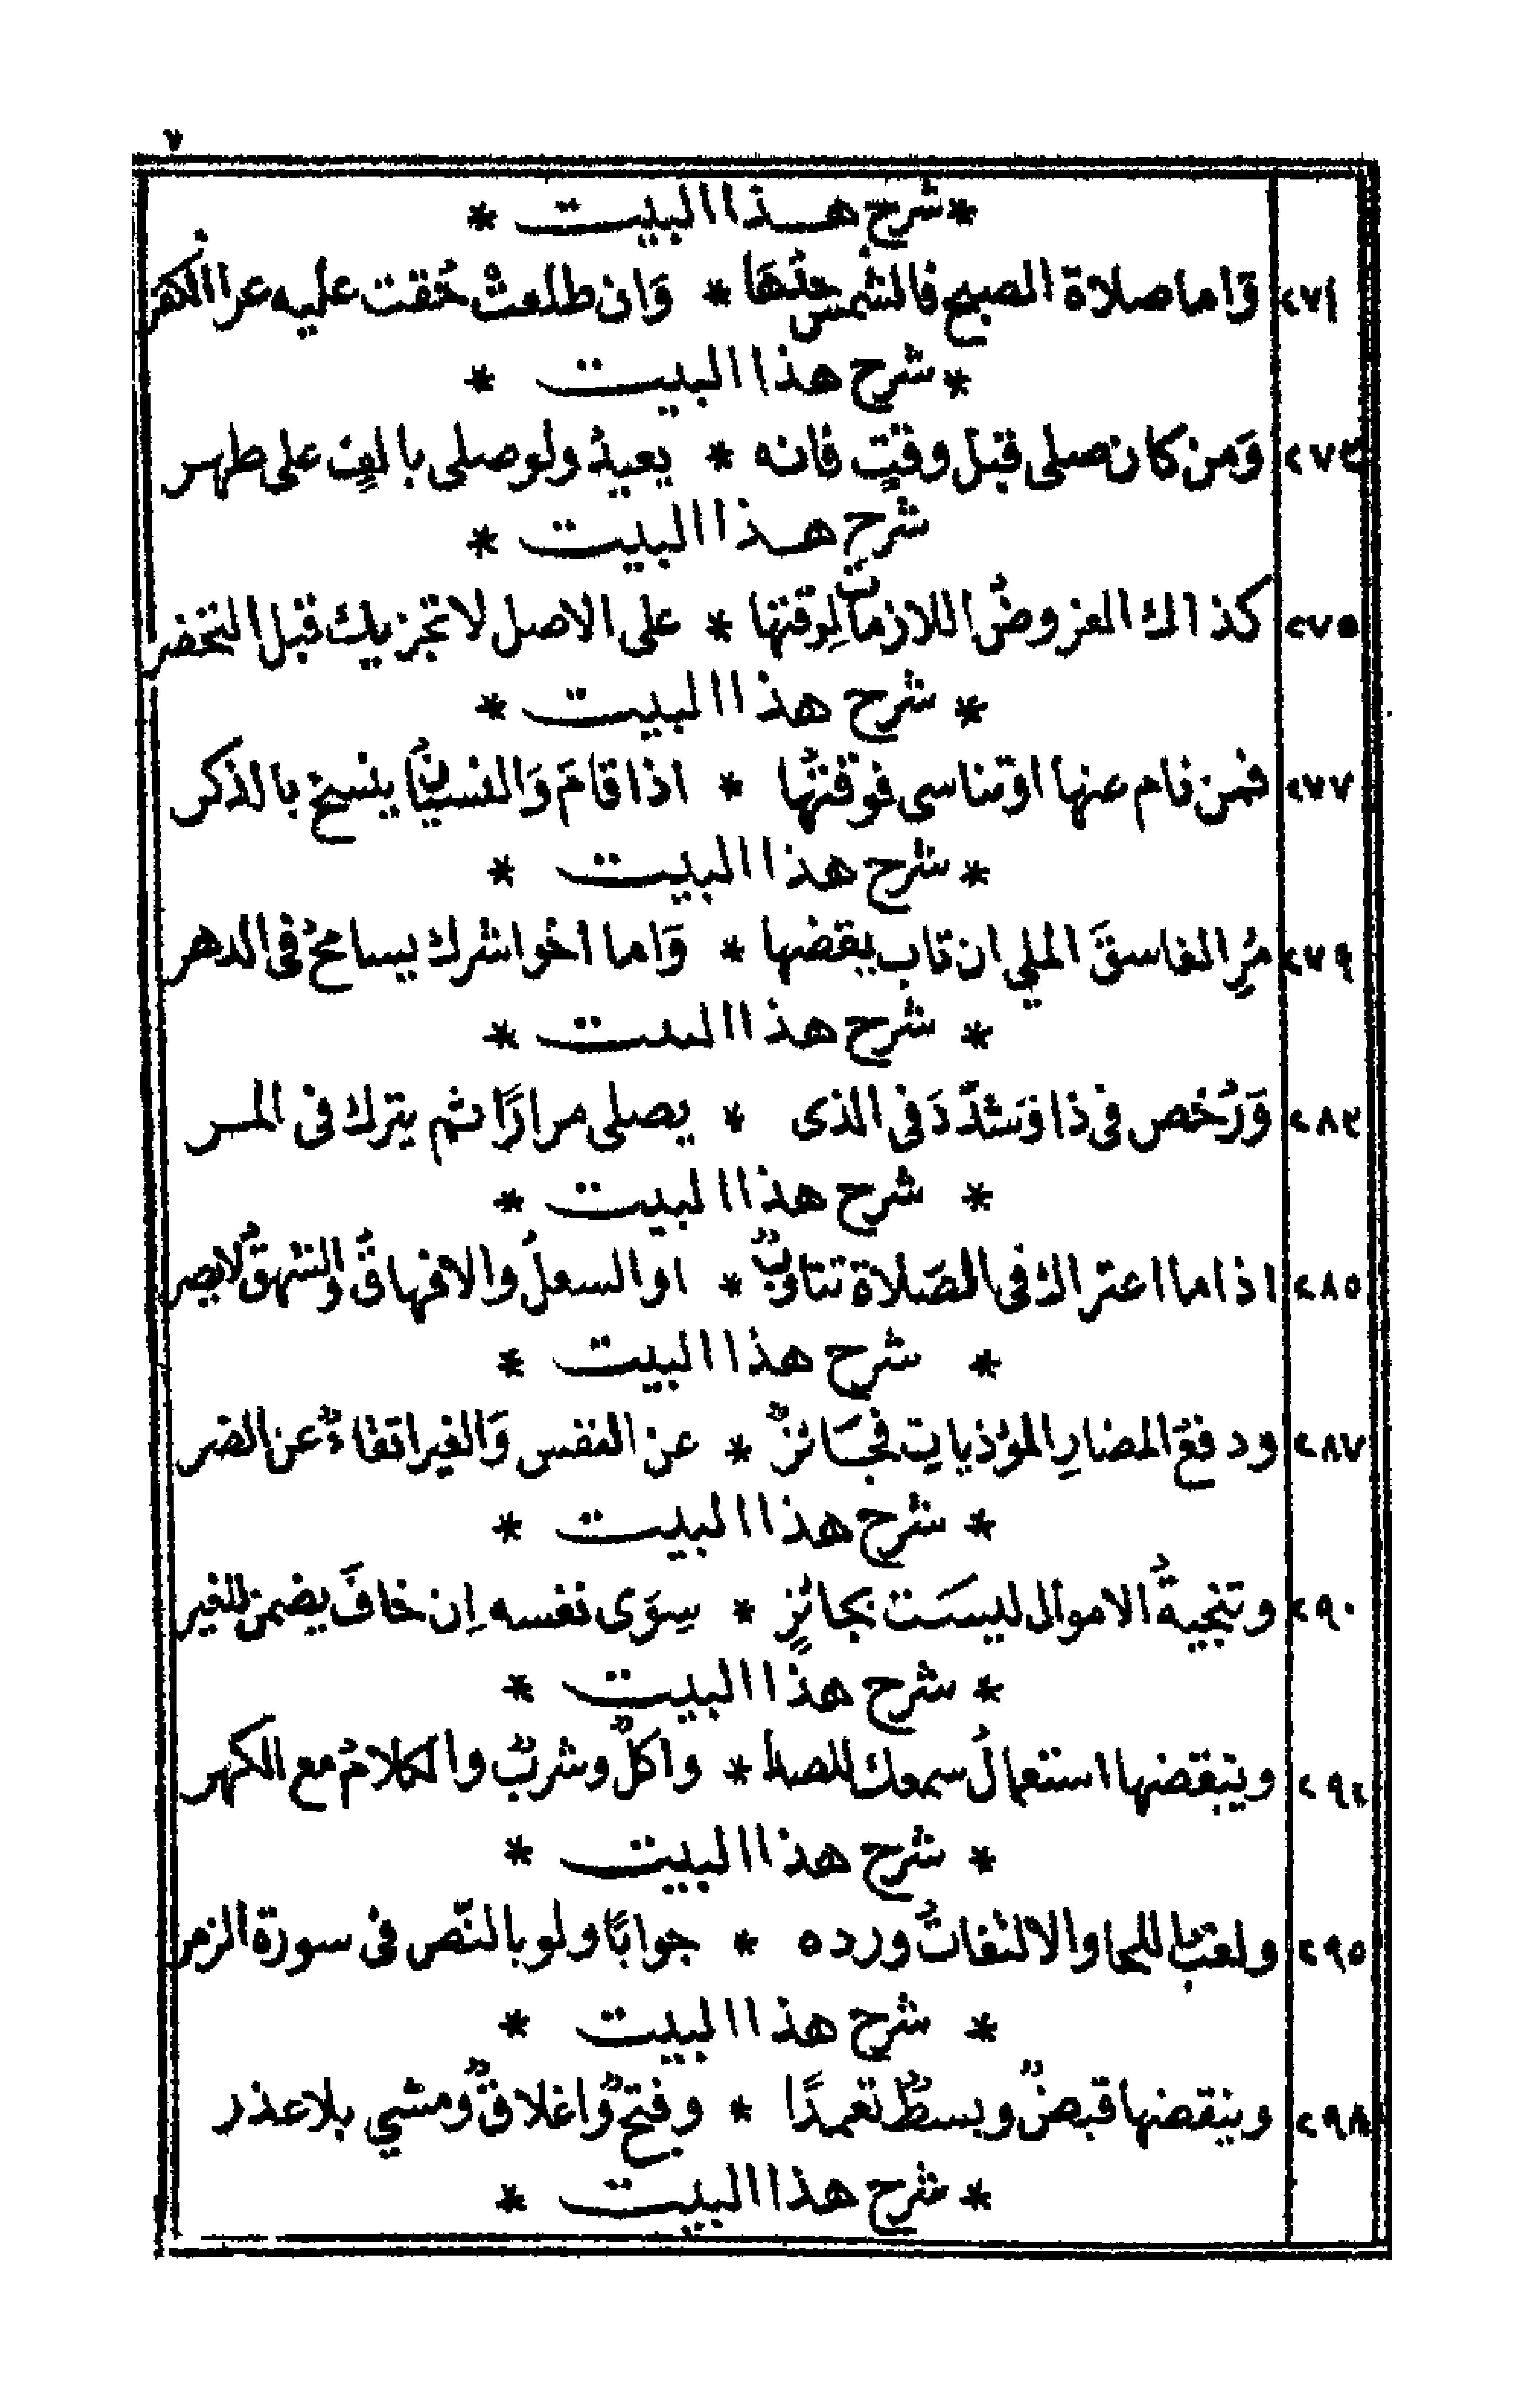 ٧
* شرح هذا البيت *
٢٧١ وَاما صلاة الصبح فالشمس حَدُّهَا * وَان طلعتْ حُقت عليه عرا الكفر
* شرح هذا البيت *
٢٧٣ وَمن كان صلى قبل وقتٍ فانه * يعيدُ ولو صلى بالفٍ على طهر
شرح هذا البيت *
٢٧٥ كذاك الفروضُ اللازماتُ لِوقتها * على الاصل لا تجزيك قبل التخضر
* شرح هذا البيت *
٢٧٧ فمن نام عنها او تناسى فوقتُها * اذا قامَ وَالنسيانُ ينسخُ بالذكر
* شرح هذا البيت *
٢٧٩ مُرِ الفاسقَ الملي ان تاب يقضها * وَاما اخو اشرك يسامحُ فى الدهر
* شرح هذا البيت *
٢٨٣ وَرُخص فى ذا وَشدّدَ فى الذى * يصلى مرارًا ثم يترك فى المر
* شرح هذا البيت *
٢٨٥ اذا ما اعتراك فى الصَلاة تثاوبٌ * او السعلُ والافهاقُ والشهقُ لا يضر
* شرح هذا البيت *
٢٨٧ ودفعُ المضارِ المؤذياتِ فجَائزٌ * عن النفس وَالغير اتقاءً عن الضر
* شرح هذا البيت *
٢٩٠ وتنجيةُ الاموال ليسَت بجائزٍ * سِوَى نفسه اِن خافَ يضمن للغير
* شرح هذا البيت *
٢٩٤ وينقضها استعمالُ سمعك للصدا * واكلٌ وشربٌ والكلامُ مع الكهر
* شرح هذا البيت *
٢٩٥ ولعبٌ باللحا والالتفاتُ ورده * جوابًا ولو بالنّص فى سورة الزمر
* شرح هذا البيت *
٢٩٨ وينقضها قبضٌ وبسطٌ تعمدًا * وفتحٌ وَاغلاقٌ ومشي بلا عذر
* شرح هذا البيت *